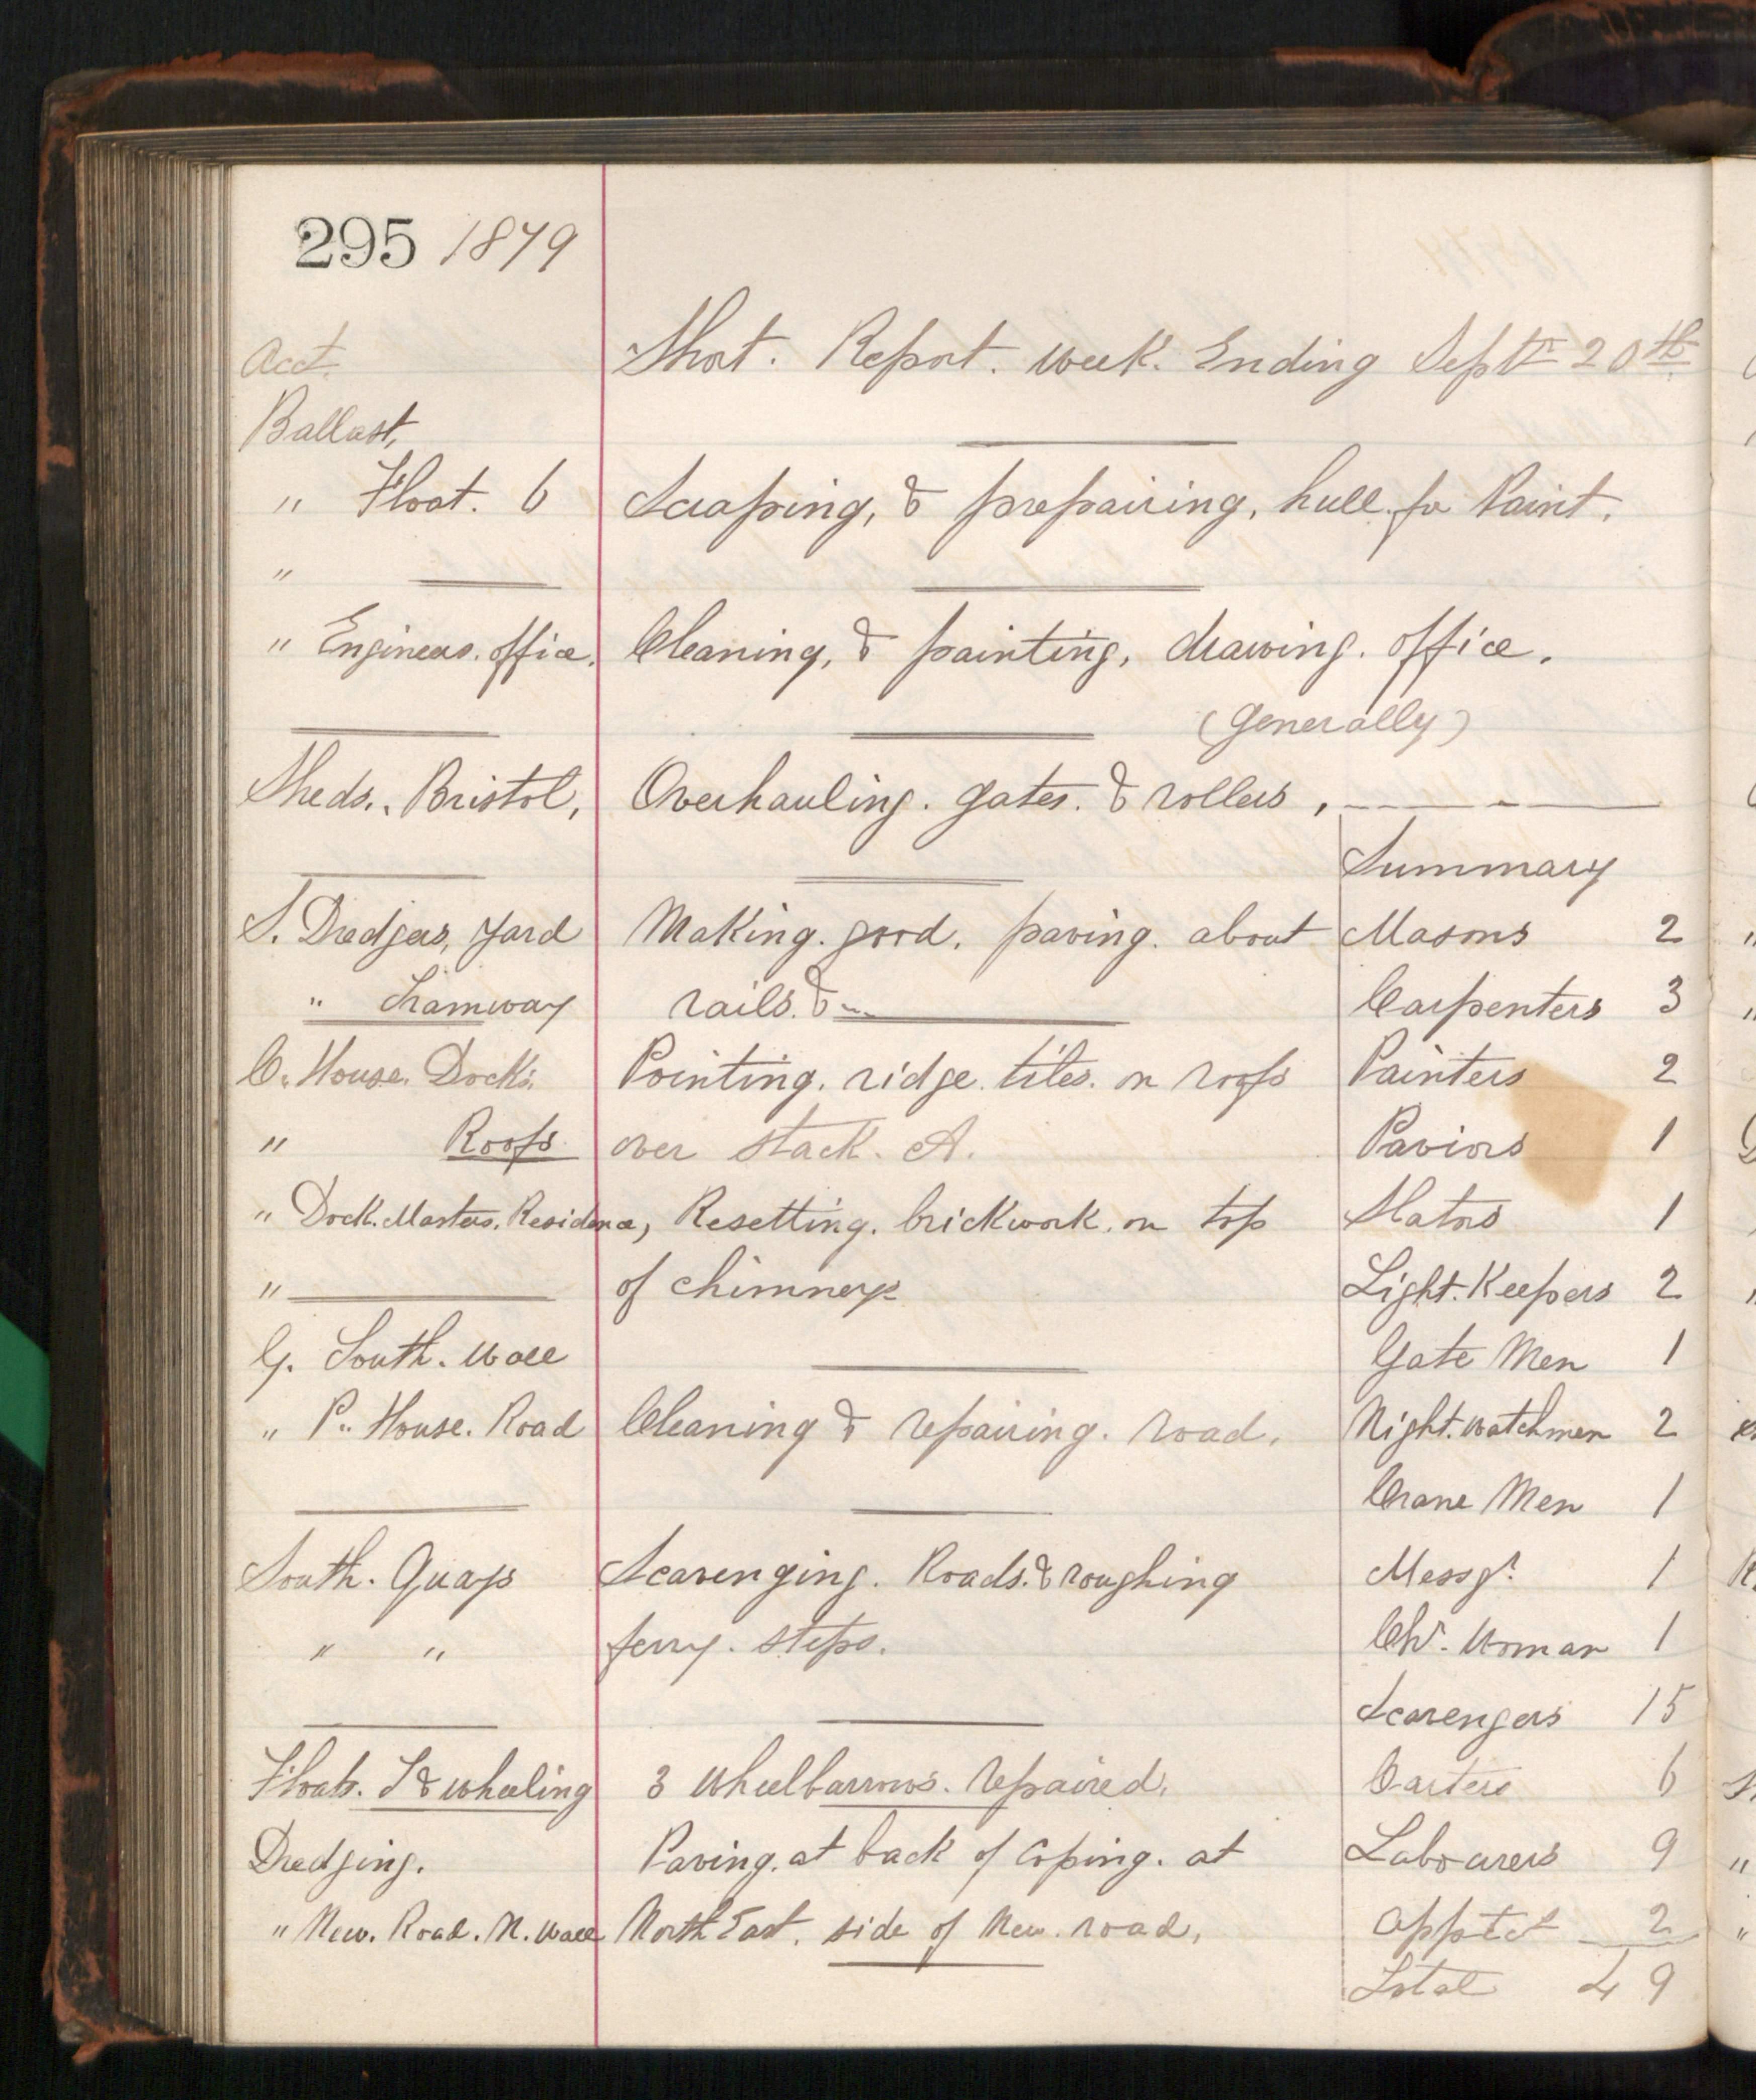 295 1879
Acct. Short. Report. week. Ending Septr 20th
Ballast,
" Float. 6 Scraping, & prepairing, hull. for Paint.
"
" Engineers. office. Cleaning, & painting, drawing. office.
(Generally)
Sheds., Bristol, Overhauling. gates. & rollers,
Summary
S. Dredgers, yard Making. good. paving. about Masons 2
" Tramway rails. & Carpenters 3
C. House. Docks. Pointing. ridge. tiles. on roofs Painters 2
" Roofs over stack. A. Paviors 1
" Dock. Masters. Residence, Resetting. brickwork. on top Slators 1
" of chimneys Light. Keepers 2
G. South. Wall Gate Men 1
" P. House. Road Cleaning & repairing. road. Night. watchmen 2
Crane Men 1
South. Quays Scavenging. Roads. & roughing Messgr. 1
" " ferry. steps. Chr. Woman 1
Scavengers 15
Floats. T & wheeling 3 wheelbarrows. repaired. Carters 6
Dredging. Paving. at back of Coping. at Labourers 9
" New. Road. N. Wall North East. side of New. road, Apptct 2
Total 49